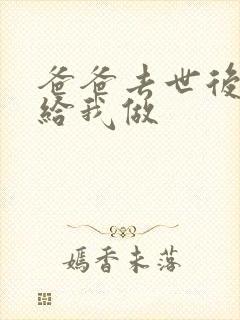 爸爸去世後
給我做
嫣香未落